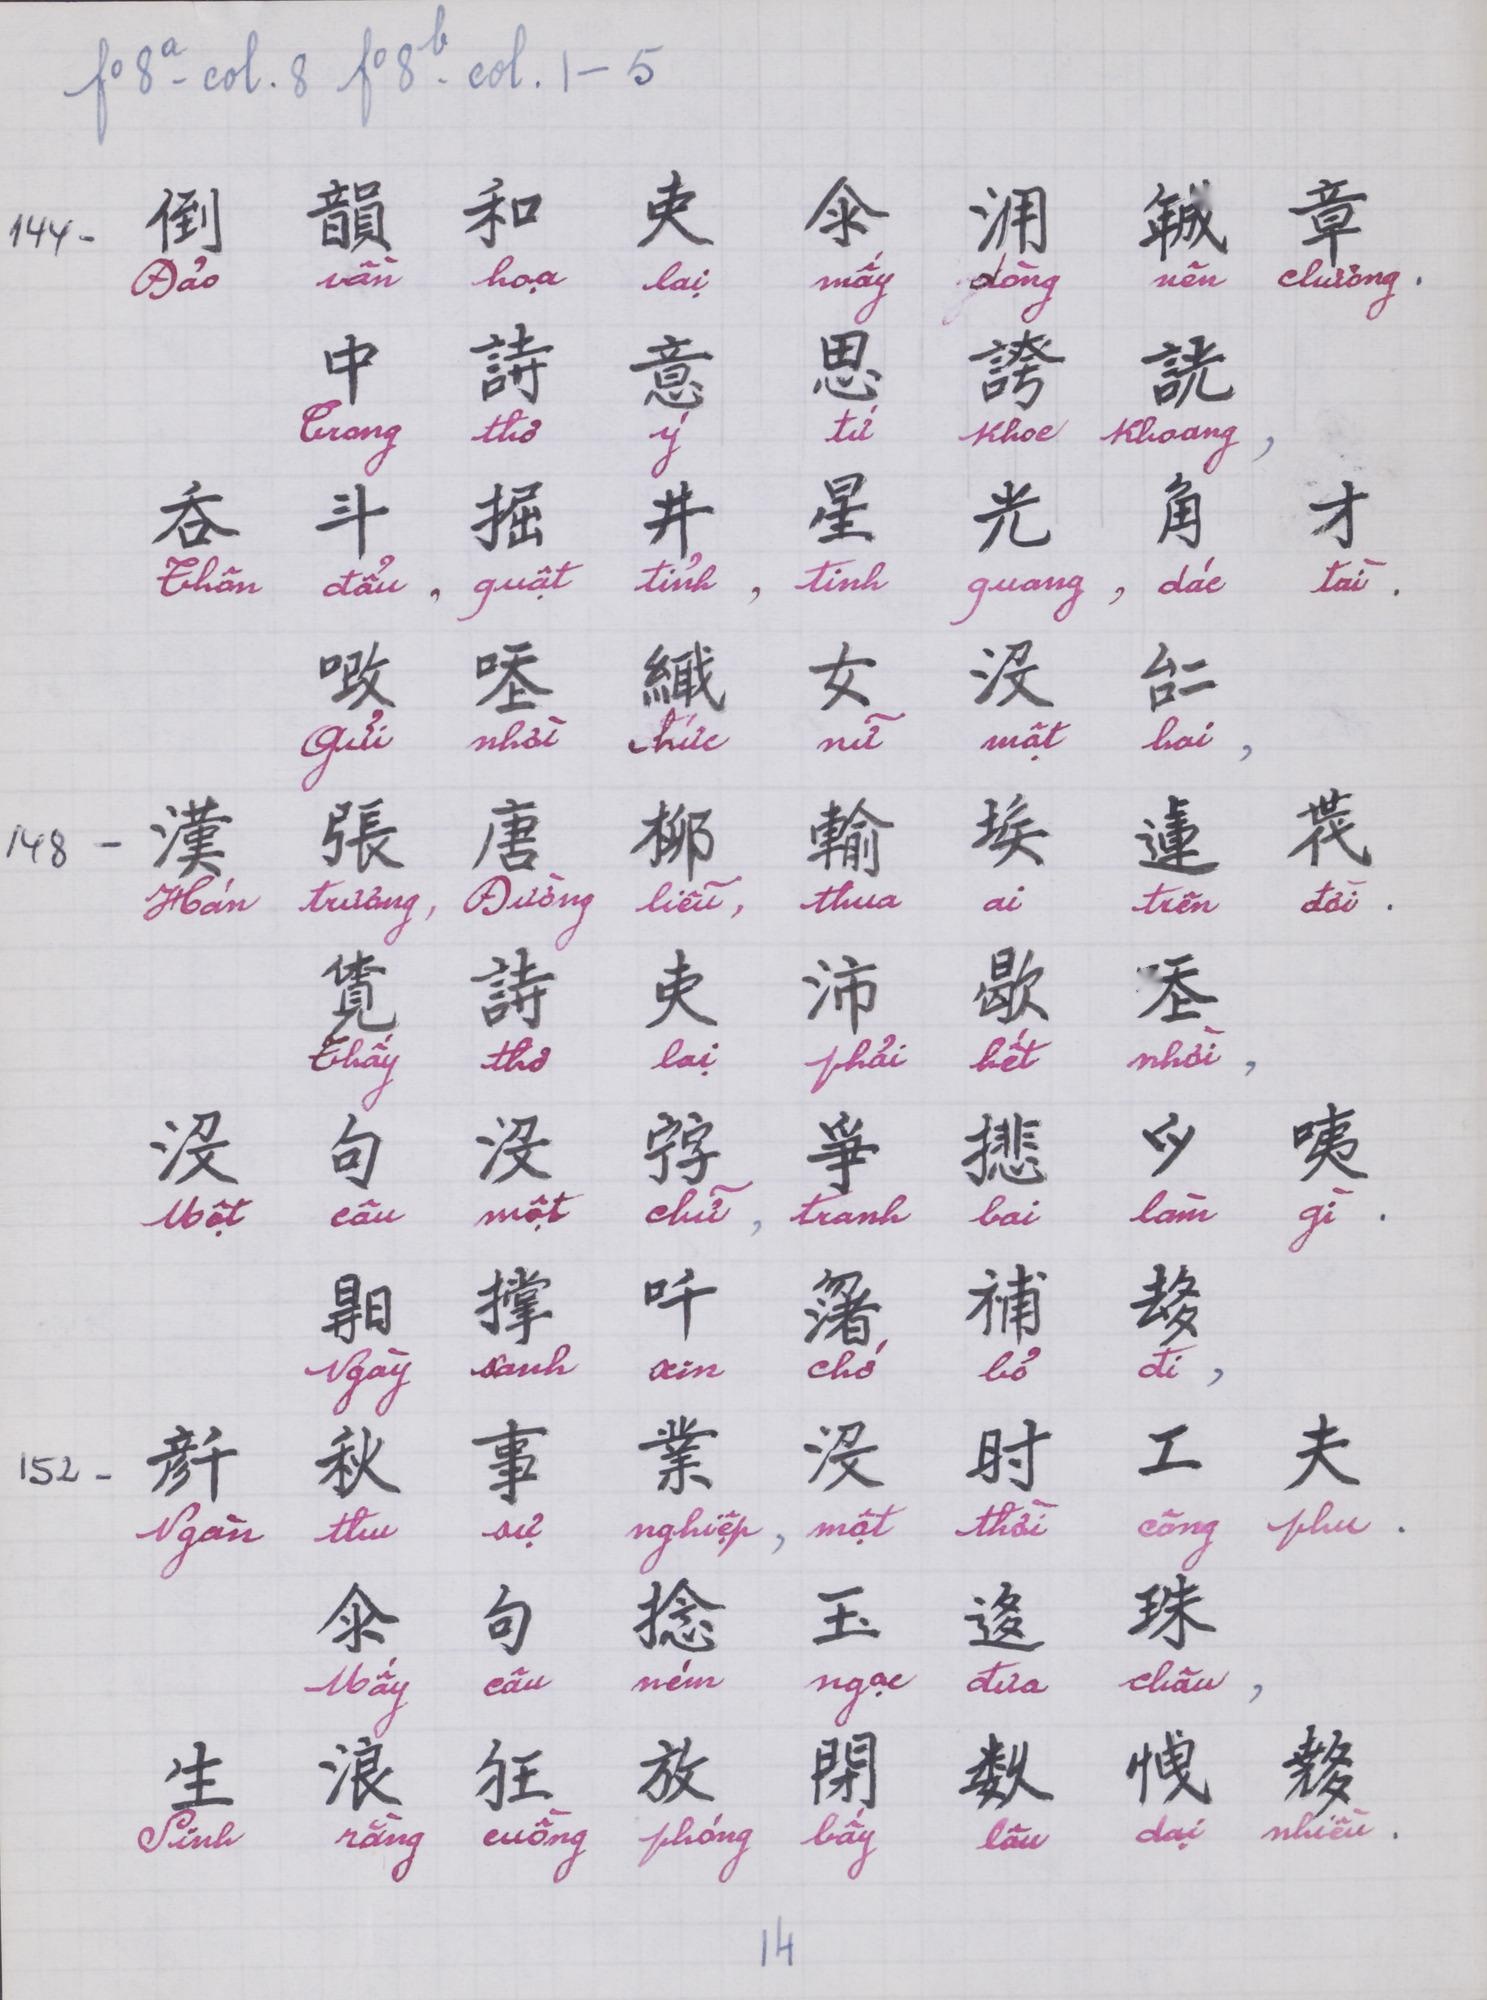 fº 8ª - col. 8 fº 8ᵇ - col. 1 – 5
144 - 倒 韻 和 吏 氽 𣳔 𢧚 章
Đảo vần hoạ lại mấy dòng nên chương.
中 詩 意 思 誇 䚾
Trong thơ ý tứ khoe khoang,
吞 斗 掘 井 星 光 角 才
Thôn đẩu, quật tỉnh, tinh quang, dác tài.
女 没 𠄩
Gửi nhời chức nữ một hai,
148 - 漢 張 唐 柳 輸 埃 蓮 𠁀
Hán trương, Đường liễu, thua ai trên đời.
詩 吏 沛 歇
Thấy thơ lại phải hết nhời,
没 句 没 𡨸 爭 咦
Một câu một chữ, tranh bai làm gì.
撑 吀 補 𠫾
Ngày xanh xin chớ bỏ đi,
152 - 秋 事 業 没 时 工 夫
Ngàn thu sự nghiệp, một thời công phu.
氽 句 捻 玉 迻 珠
Mấy câu ném ngọc đưa châu,
生 浪 狂 放 閉 数
Sinh rằng cuồng phóng bấy lâu dại nhiều.
14